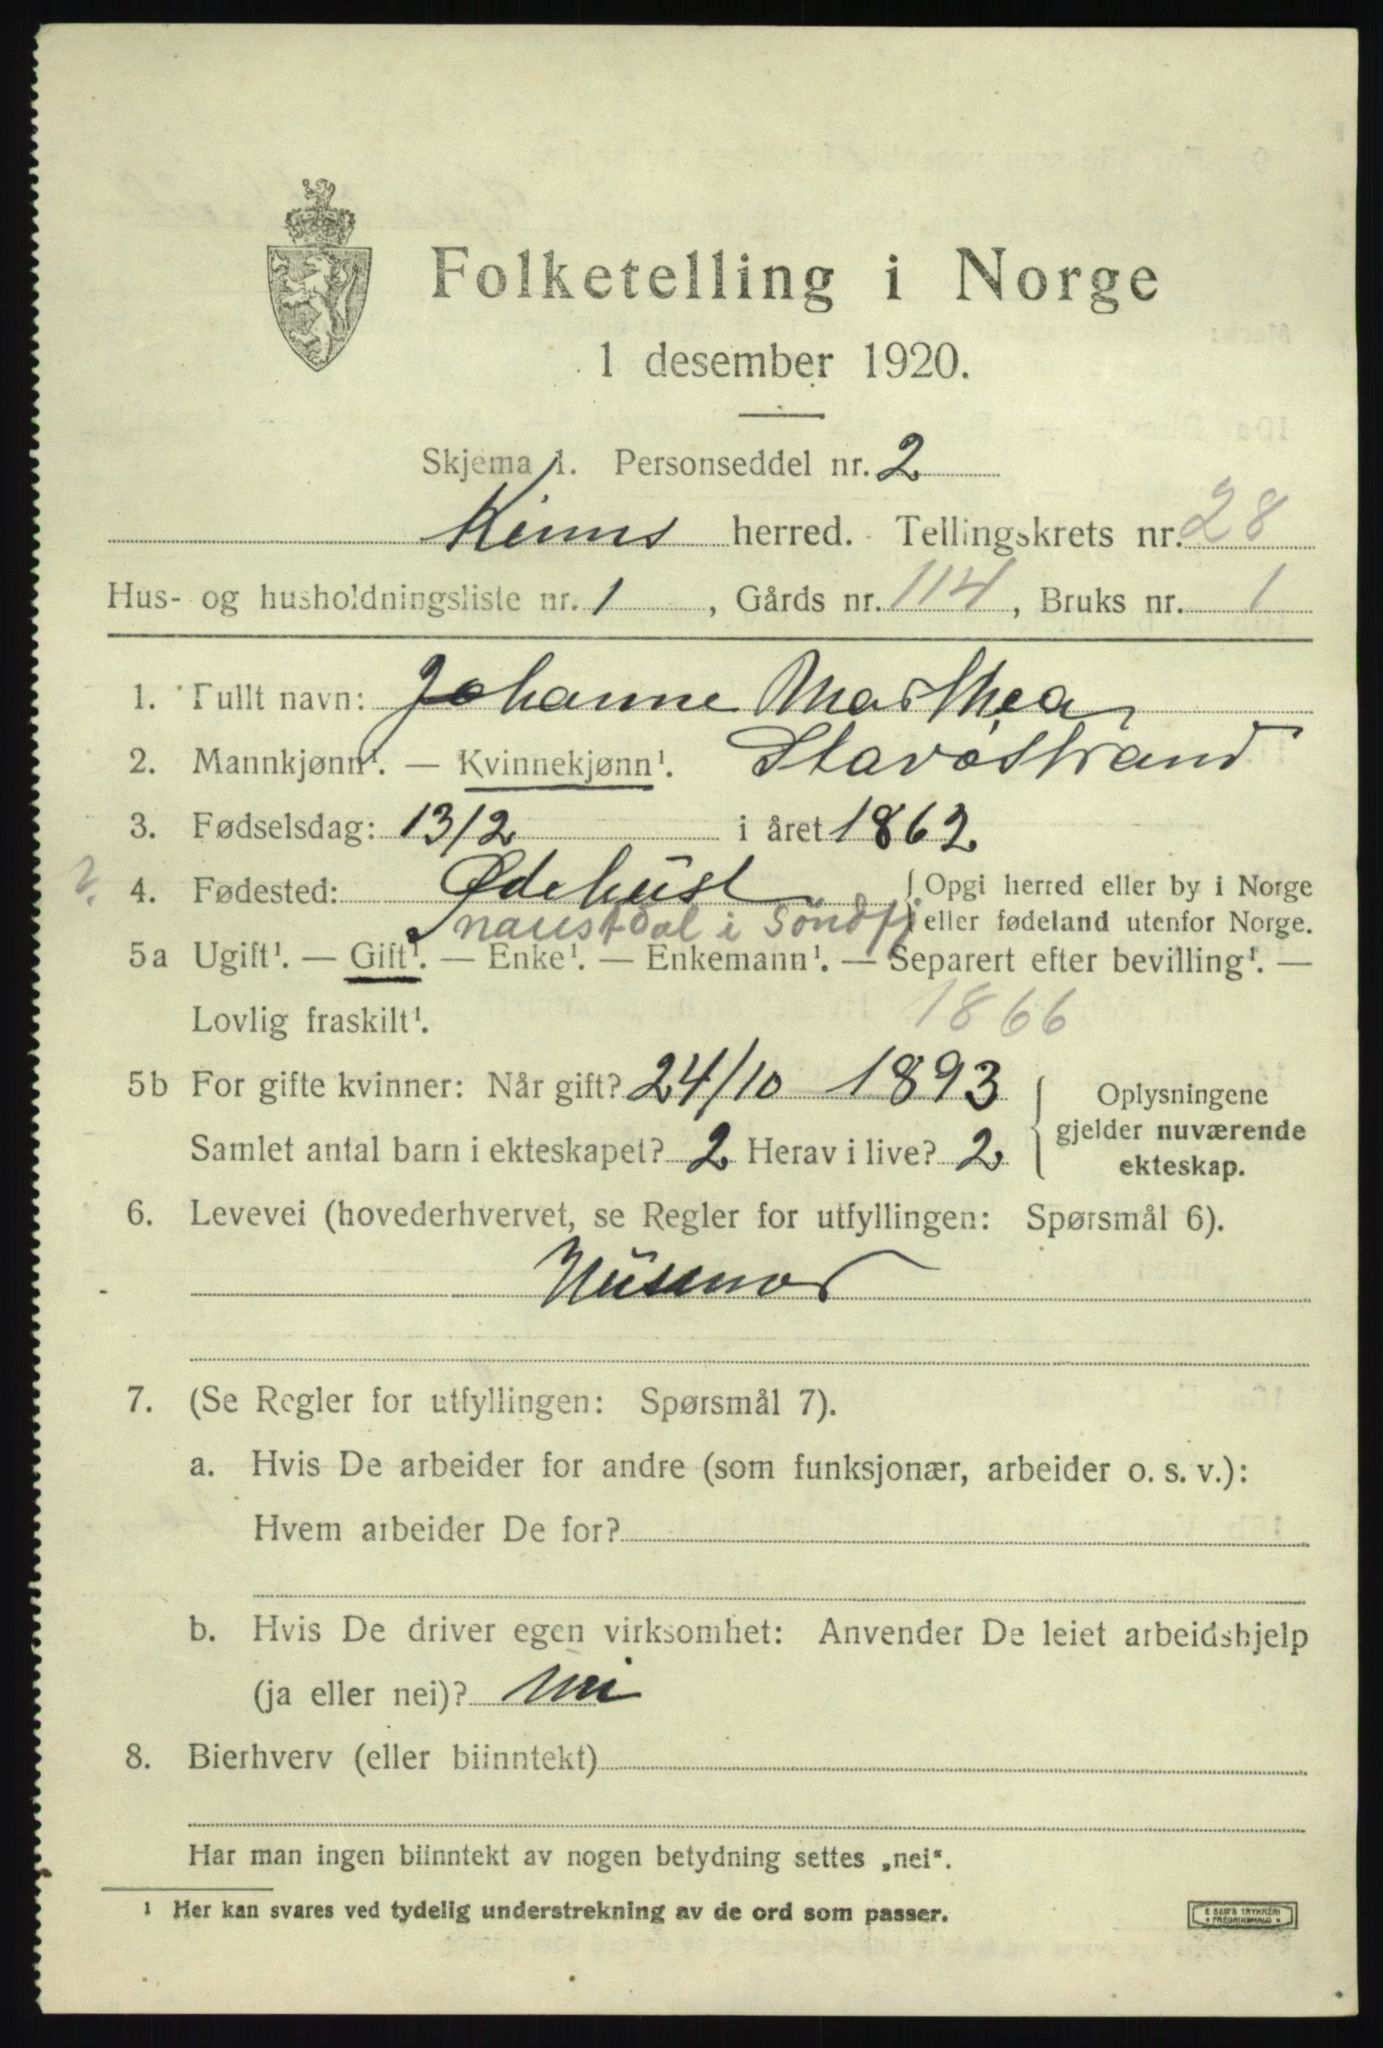 Folketelling i Norge
1 desember 1920.
Skjema 1. Personseddel nr. 2
Kinns herred. Tellingskrets nr. 28
Hus- og husholdningsliste nr. 1, Gårds nr. 114, Bruks nr. 1
1. Fullt navn: Johanne Marthea
2. Mannkjønn¹. — Kvinnekjønn¹. Stavøstrand
3. Fødselsdag: 13/2 i året 1862
? 4. Fødested: Ødehüst { Opgi herred eller by i Norge
naustdal i Söndfj eller fødeland utenfor Norge.
5a Ugift¹. — Gift¹. — Enke¹. — Enkemann¹. — Separert efter bevilling¹. —
Lovlig fraskilt¹. 1866
5b For gifte kvinner: Når gift? 24/10 1893 { Oplysningene
gjelder nuværende
Samlet antal barn i ekteskapet? 2 Herav i live? 2 ekteskap.
6. Levevei (hovederhvervet, se Regler for utfyllingen: Spørsmål 6).
Hüsmor
7. (Se Regler for utfyllingen: Spørsmål 7).
a. Hvis De arbeider for andre (som funksjonær, arbeider o. s. v.):
Hvem arbeider De for?
b. Hvis De driver egen virksomhet: Anvender De leiet arbeidshjelp
(ja eller nei)? nei
8. Bierhverv (eller biinntekt)
Har man ingen biinntekt av nogen betydning settes „nei“.
¹ Her kan svares ved tydelig understrekning av de ord som passer.
E SEM'S TRYKKERI
FREDRIKSHALD